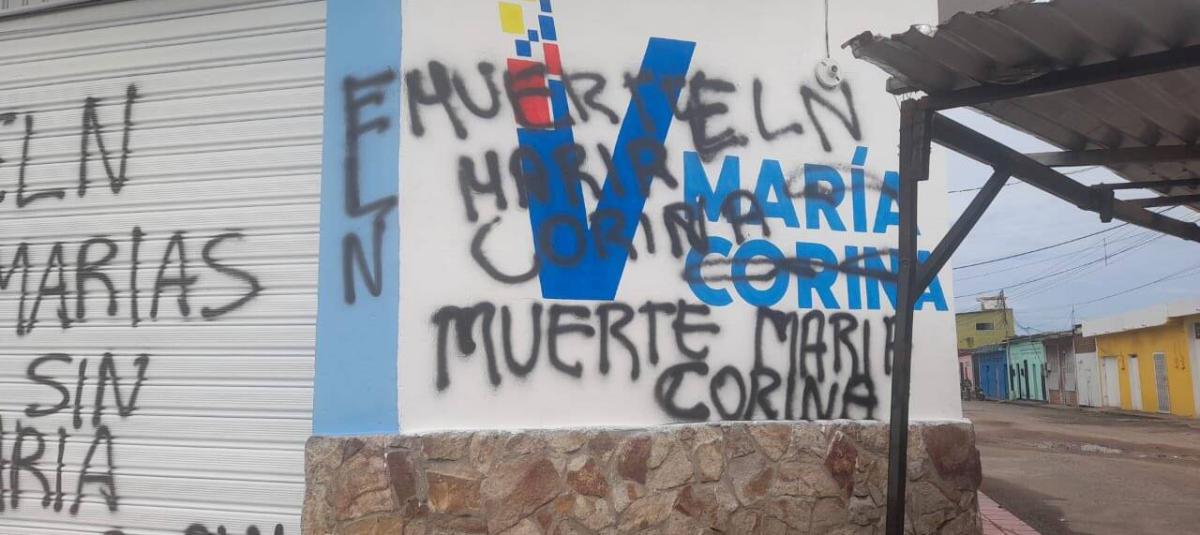 ELN
MARIAS
SIN
ARIA
ELN
MUERTE ELN
MARIA
CORINA
V
MARÍA
CORINA
MUERTE MARIA
CORINA